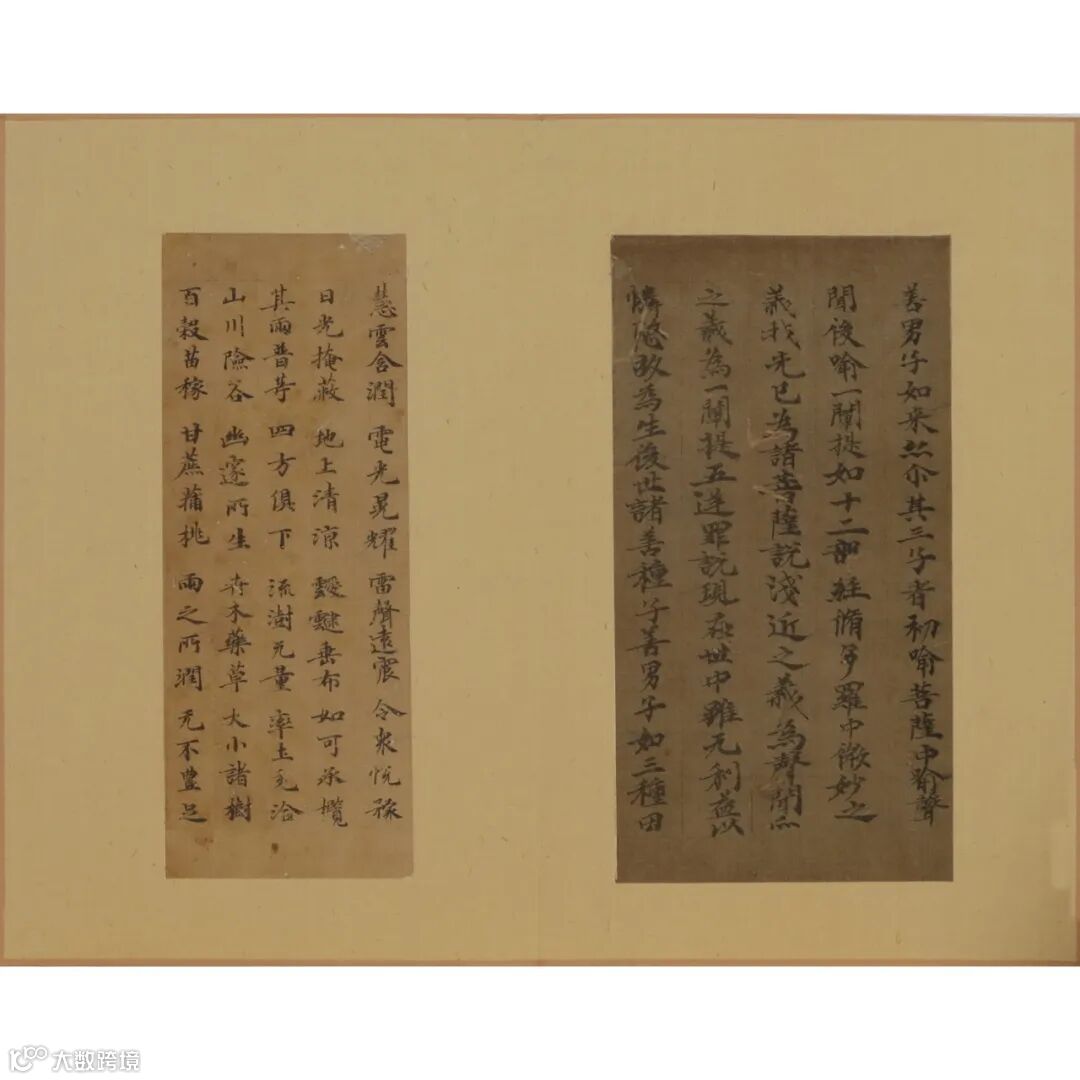 善男子如来亦尒其三子者初喻菩薩中喻聲
聞後喻一闡提如十二部経脩多羅中微妙之
義我先已為諸菩薩説淺近之義為聲聞説
之義為一闡提五逆罪説現在世中雖无利益以
憐愍故為生後世諸善種子善男子如三種田
慧雲含潤 電光晃耀 雷聲遠震 令衆悦豫
日光掩蔽 地上清涼 靉靆垂布 如可承攬
其雨普等 四方俱下 流澍无量 率土充洽
山川險谷 幽邃所生 卉木藥草 大小諸樹
百穀苗稼 甘蔗蒲桃 雨之所潤 无不豊足
大数跨境